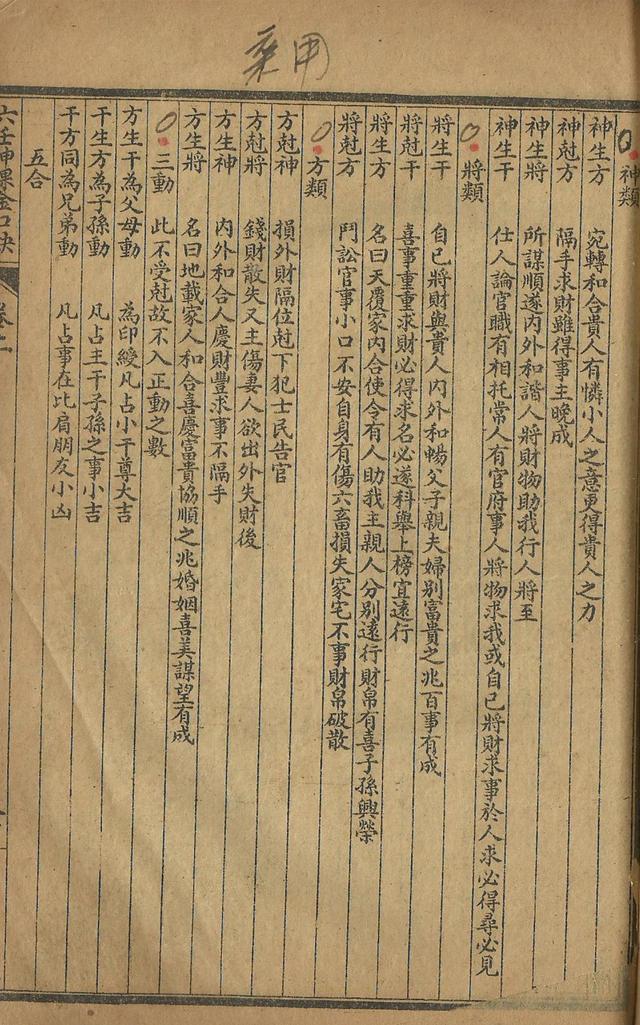 乘用
神類
神生方 宛轉和合貴人有憐小人之意更得貴人之力
神尅方 隔手求財雖得事主晚成
神生將 所謀順遂內外和諧人將財物助我行人將至
神生干 仕人論官職有相托常人有官府事人將物求我或自己將財求事於人求必得尋必見
將類
將生干 自己將財與貴人內外和暢父子親夫婦別富貴之兆百事有成
將尅干 喜事重重求財必得求名必遂科舉上榜宜遠行
將生方 名曰天覆家內合使令有人助我主親人分別遠行財帛有喜子孫興榮
將尅方 鬥訟官事小口不安自身有傷六畜損失家宅不事財帛破散
方類
方尅神 損外財隔位尅下犯士民告官
方尅將 錢財散失又主傷妻人欲出外失財後
方生神 內外和合人慶財豐求事不隔手
方生將 名曰地載家人和合喜慶富貴協順之兆婚姻喜美謀望有成
三動 此不受尅故不入正動之數
方生干為父母動 為印綬凡占小干尊大吉
干生方為子孫動 凡占主干子孫之事小吉
干方同為兄弟動 凡占事在比肩朋友小凶
五合
六壬神課金口訣 卷二